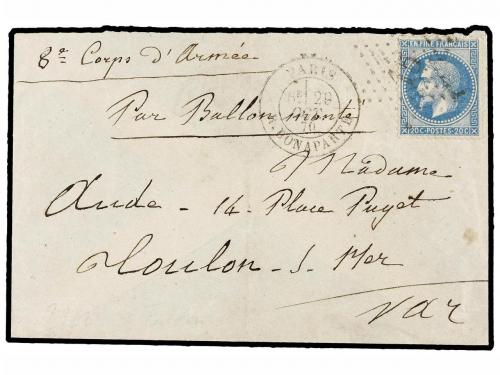 8e Corps d'Armée
PARIS
29
OCT
70
BONAPARTE
EMPIRE FRANÇAIS
20C·POSTES·20C
Par Ballon monté
Madame
Aude - 14 Place Puget
Toulon - S - Mer
Var